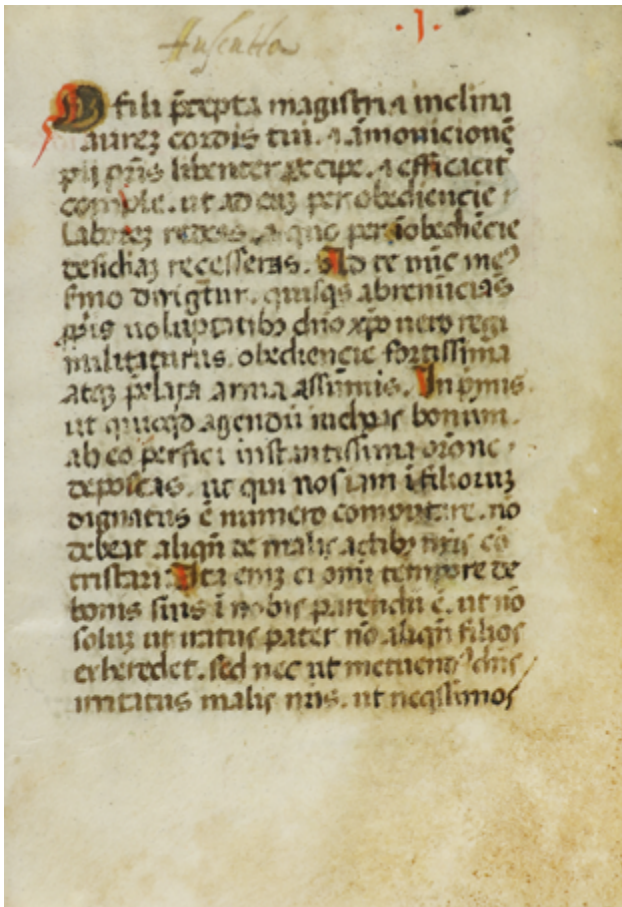 Ausculta
·J·
O fili p̄cepta magistri ⁊ inclina
aureꝫ cordis tui. ⁊ āmonicionē
pii pr̄is libenter excipe. ⁊ efficacit̄
comple. ut ad euꝫ per obediencie
laboreꝫ redeas. a quo per īobediēcie
desidiaꝫ recesseras. Ad te nūc meꝰ
sermo dirigit̄ur. quisqs abrenūcias
ꝓpriis uoluptatibꝫ dn̄o xp̄o uero regi
militaturus. obediencie fortissima
atqꝫ p̄clara arma assūmis. In p̄mis
ut quicqd agendū inchoas bonum.
ab eo perfici instantissima or̄one
deposcas. ut qui nos iam ī filioruꝫ
dignatus ē numero computare. nō
debeat aliqn̄ de malis actibꝫ nr̄is cō
tristari. Ita eniꝫ ei omī tempore de
bonis suis ī nobis parendū ē. ut nō
soluꝫ ut iratus pater nō aliqn̄ filios
exheredet. sed nec ut metuendꝰ dn̄s
irritatus malis nr̄is. ut neq̄ssimos